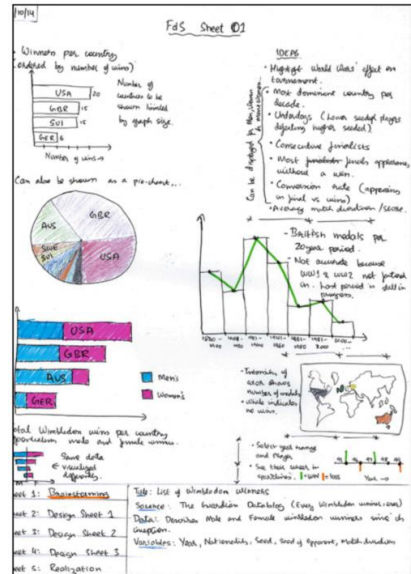 /10/14
FdS Sheet 01
Winners per country
(ordered by number of wins)
USA 20
GBR 15
SUI 15
GER 6
Number of wins →
Number of
countries to be
shown limited
by graph size.
Can also be shown as a pie-chart...
GBR
AUS
SUI
USA
USA
GBR
AUS
GER
Men's
Women's
Total Wimbledon wins per country
male and female
Same data
visualized
differently.
IDEAS
Highlight world wars' effect on
tournament.
Most dominant country per
decade.
Underdogs (lower seeded players
defeating higher seeded)
Consecutive finalists
Most finals appearances
without a win.
Conversion rate (appearances
in final vs wins)
Average match duration /score.
Can be displayed by
British medals per
20 year period.
Not accurate because
WW1 & WW2 not
Intensity of
each shows
number of medals
white indicates
no wins.
Select year range
and player
See their
Year →
eet 1: Brainstorming
eet 2: Design Sheet 1
eet 3: Design Sheet 2
eet 4: Design Sheet 3
eet 5: Realization
Title: List of Wimbledon Winners
Source: The Guardian Datablog (Every Wimbledon winner)
Data: Describes Male and Female wimbledon winners since its
inception.
Variables: Year, Nationality, Seed, Seed of Opponent, Match duration